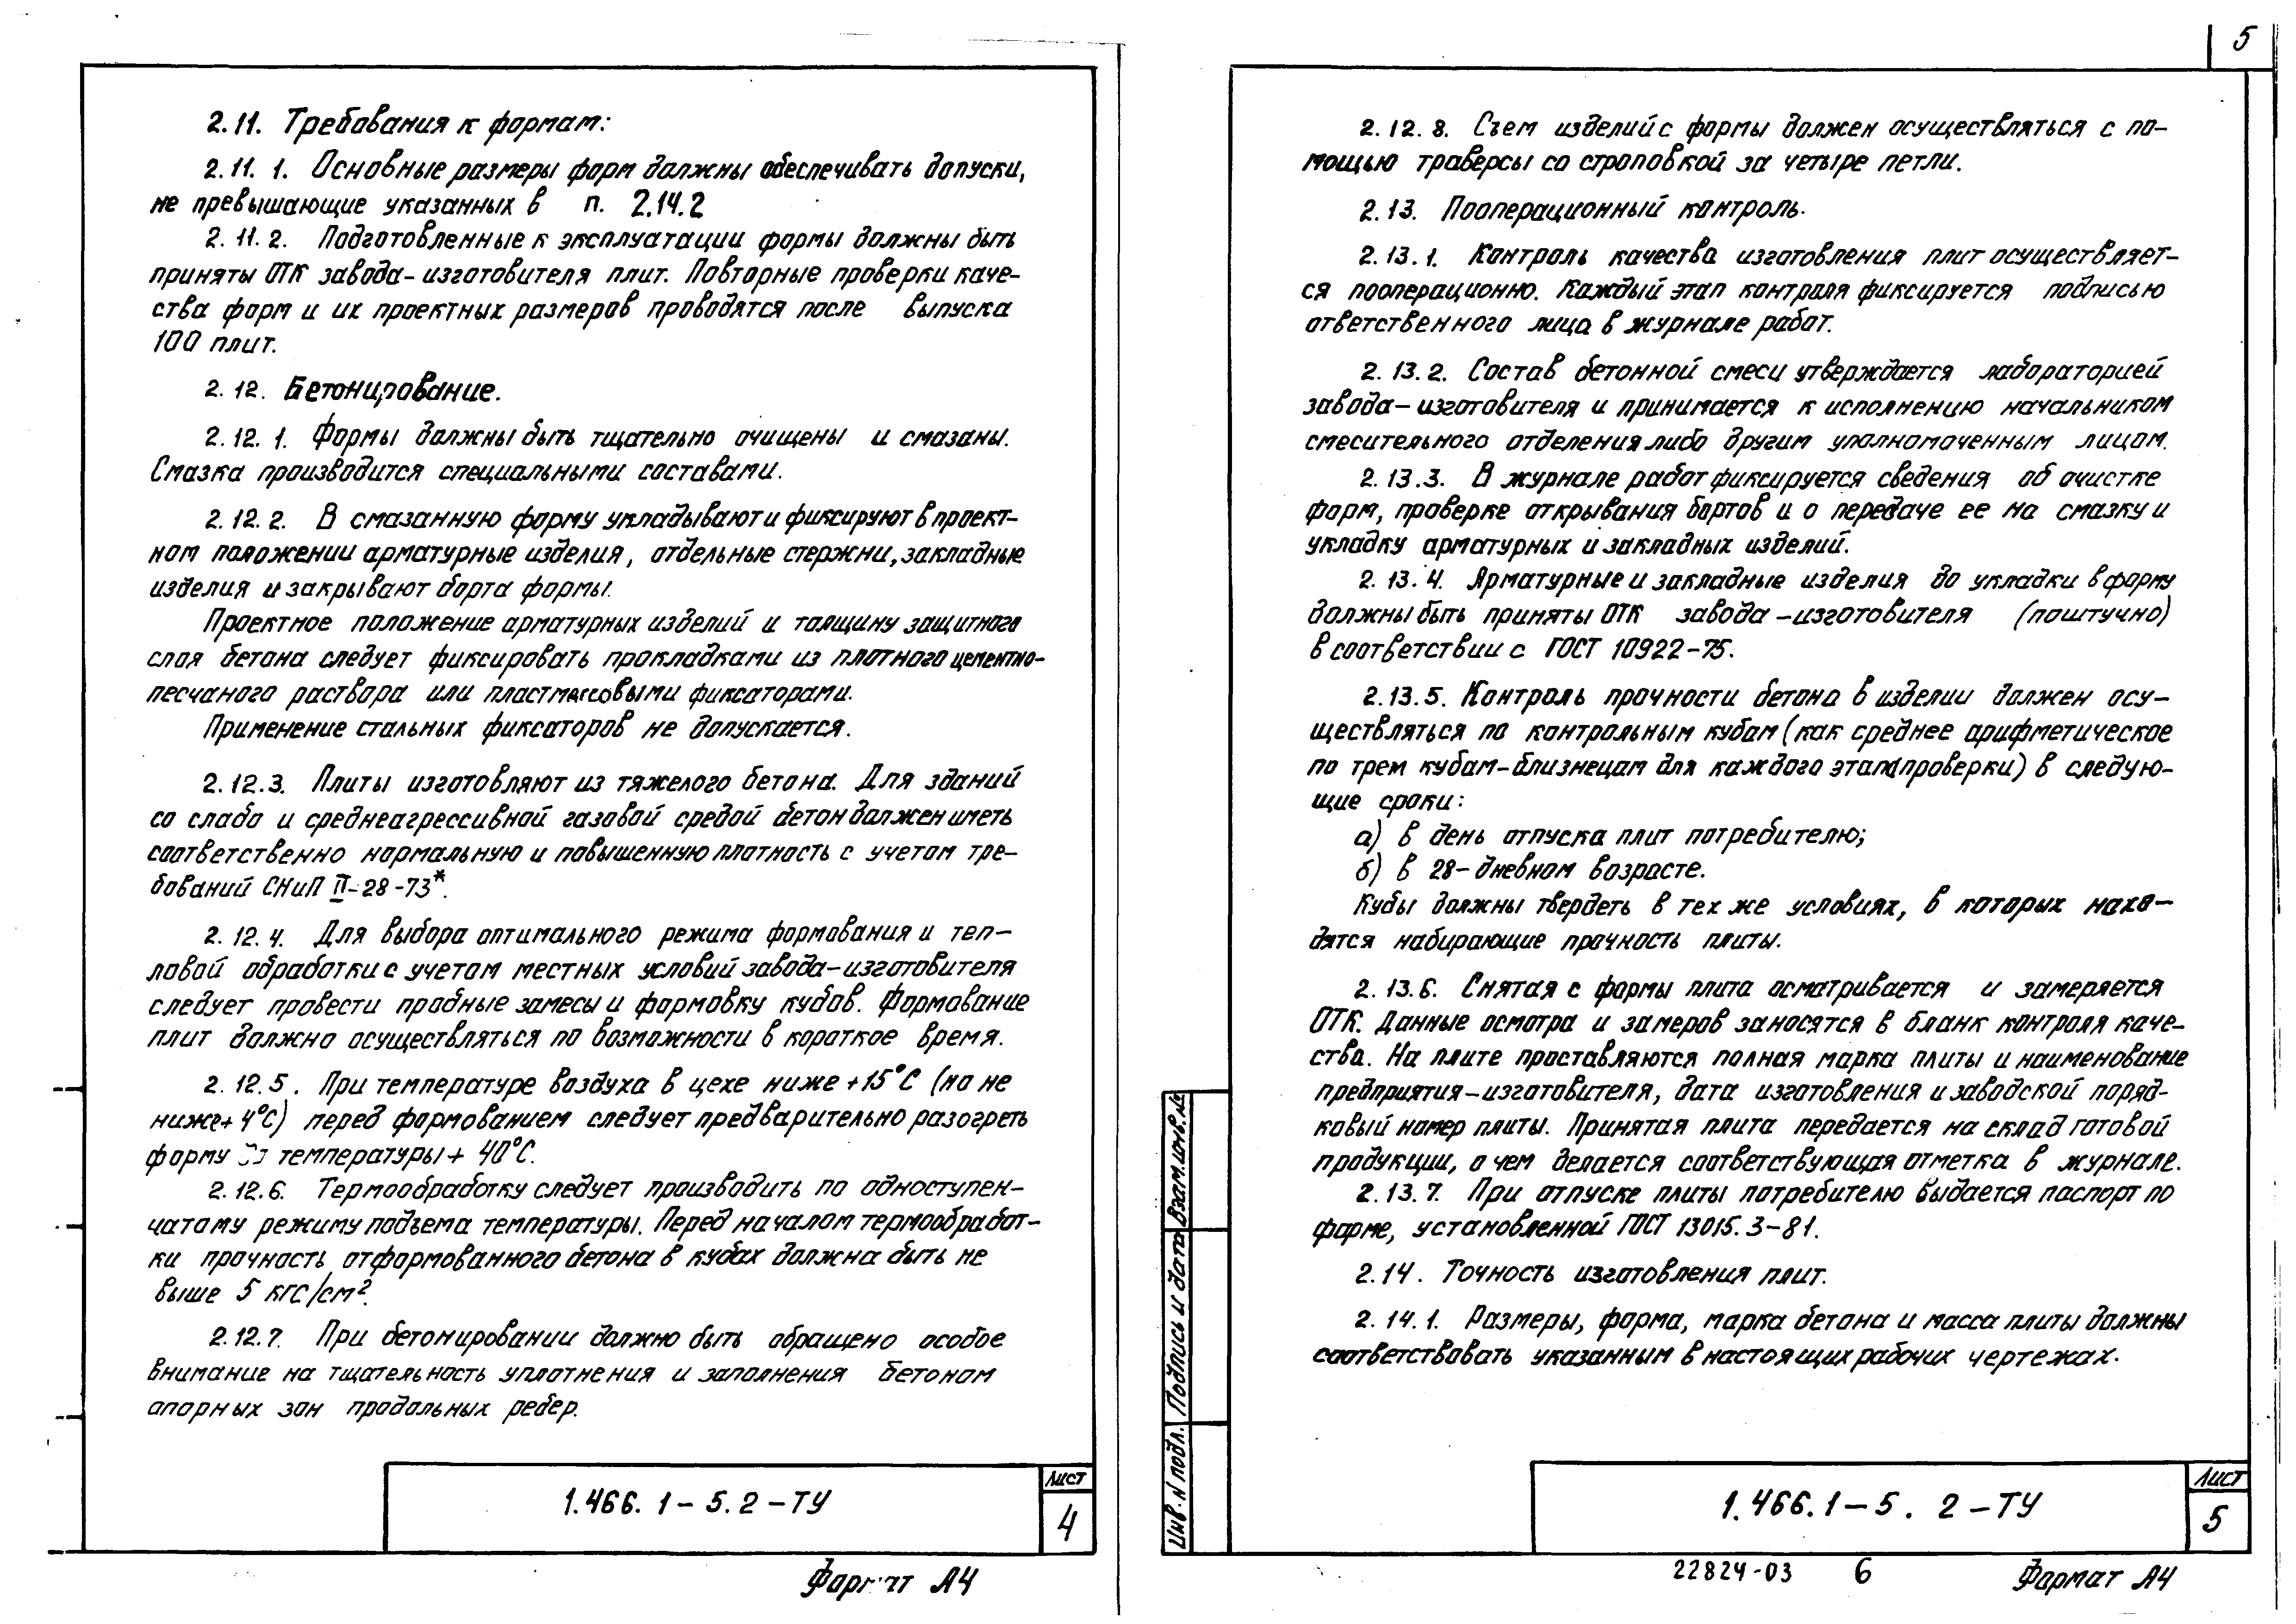 2.11. Требования к формам:
2.11.1. Основные размеры форм должны обеспечивать допуски,
не превышающие указанных в п. 2.14.2
2.11.2. Подготовленные к эксплуатации формы должны быть
приняты ОТК завода-изготовителя плит. Повторные проверки каче-
ства форм и их проектных размеров проводятся после выпуска
100 плит.
2.12. Бетонирование.
2.12.1. Формы должны быть тщательно очищены и смазаны.
Смазка производится специальными составами.
2.12.2. В смазанную форму укладывают и фиксируют в проект-
ном положении арматурные изделия, отдельные стержни, закладные
изделия и закрывают борта формы.
Проектное положение арматурных изделий и толщину защитного
слоя бетона следует фиксировать прокладками из плотного цементно-
песчаного раствора или пластмассовыми фиксаторами.
Применение стальных фиксаторов не допускается.
2.12.3. Плиты изготовляют из тяжелого бетона. Для зданий
со слабо и среднеагрессивной газовой средой бетон должен иметь
соответственно нормальную и повышенную плотность с учетом тре-
бований СНиП II-28-73*.
2.12.4. Для выбора оптимального режима формования и теп-
ловой обработки с учетом местных условий завода-изготовителя
следует провести пробные замесы и формовку кубов. Формование
плит должно осуществляться по возможности в короткое время.
2.12.5. При температуре воздуха в цехе ниже +15°С (но не
ниже +4°С) перед формованием следует предварительно разогреть
форму температуры +40°С.
2.12.6. Термообработку следует производить по одноступен-
чатому режиму подъема температуры. Перед началом термообработ-
ки прочность отформованного бетона в кубах должна быть не
выше 5 кгс/см².
2.12.7. При бетонировании должно быть обращено особое
внимание на тщательность уплотнения и заполнения бетоном
опорных зон продольных ребер.
1.466.1-5.2-ТУ
Лист
4
Формат А4
5
2.12.8. Съем изделий с формы должен осуществляться с по-
мощью траверсы со строповкой за четыре петли.
2.13. Пооперационный контроль.
2.13.1. Контроль качества изготовления плит осуществляет-
ся пооперационно. Каждый этап контроля фиксируется подписью
ответственного лица в журнале работ.
2.13.2. Состав бетонной смеси утверждается лабораторией
завода-изготовителя и принимается к исполнению начальником
смесительного отделения либо другим уполномоченным лицом.
2.13.3. В журнале работ фиксируется сведения об очистке
форм, проверке открывания бортов и о передаче ее на смазку и
укладку арматурных и закладных изделий.
2.13.4. Арматурные и закладные изделия до укладки в форму
должны быть приняты ОТК завода-изготовителя (поштучно)
в соответствии с ГОСТ 10922-75.
2.13.5. Контроль прочности бетона в изделии должен осу-
ществляться по контрольным кубам (как среднее арифметическое
по трем кубам-близнецам для каждого этапа проверки) в следую-
щие сроки:
а) в день отпуска плит потребителю;
б) в 28-дневном возрасте.
Кубы должны твердеть в тех же условиях, в которых нахо-
дятся набирающие прочность плиты.
2.13.6. Снятая с формы плита осматривается и замеряется
ОТК. Данные осмотра и замеров заносятся в бланк контроля каче-
ства. На плите проставляются полная марка плиты и наименование
предприятия-изготовителя, дата изготовления и заводской поряд-
ковый номер плиты. Принятая плита передается на склад готовой
продукции, о чем делается соответствующая отметка в журнале.
2.13.7. При отпуске плиты потребителю выдается паспорт по
форме, установленной ГОСТ 13015.3-81.
2.14. Точность изготовления плит.
2.14.1. Размеры, форма, марка бетона и масса плиты должны
соответствовать указанным в настоящих рабочих чертежах.
Взам.инв.№
Подпись и дата
Инв.N подл.
1.466.1-5.2-ТУ
Лист
5
22824-03 6 Формат А4